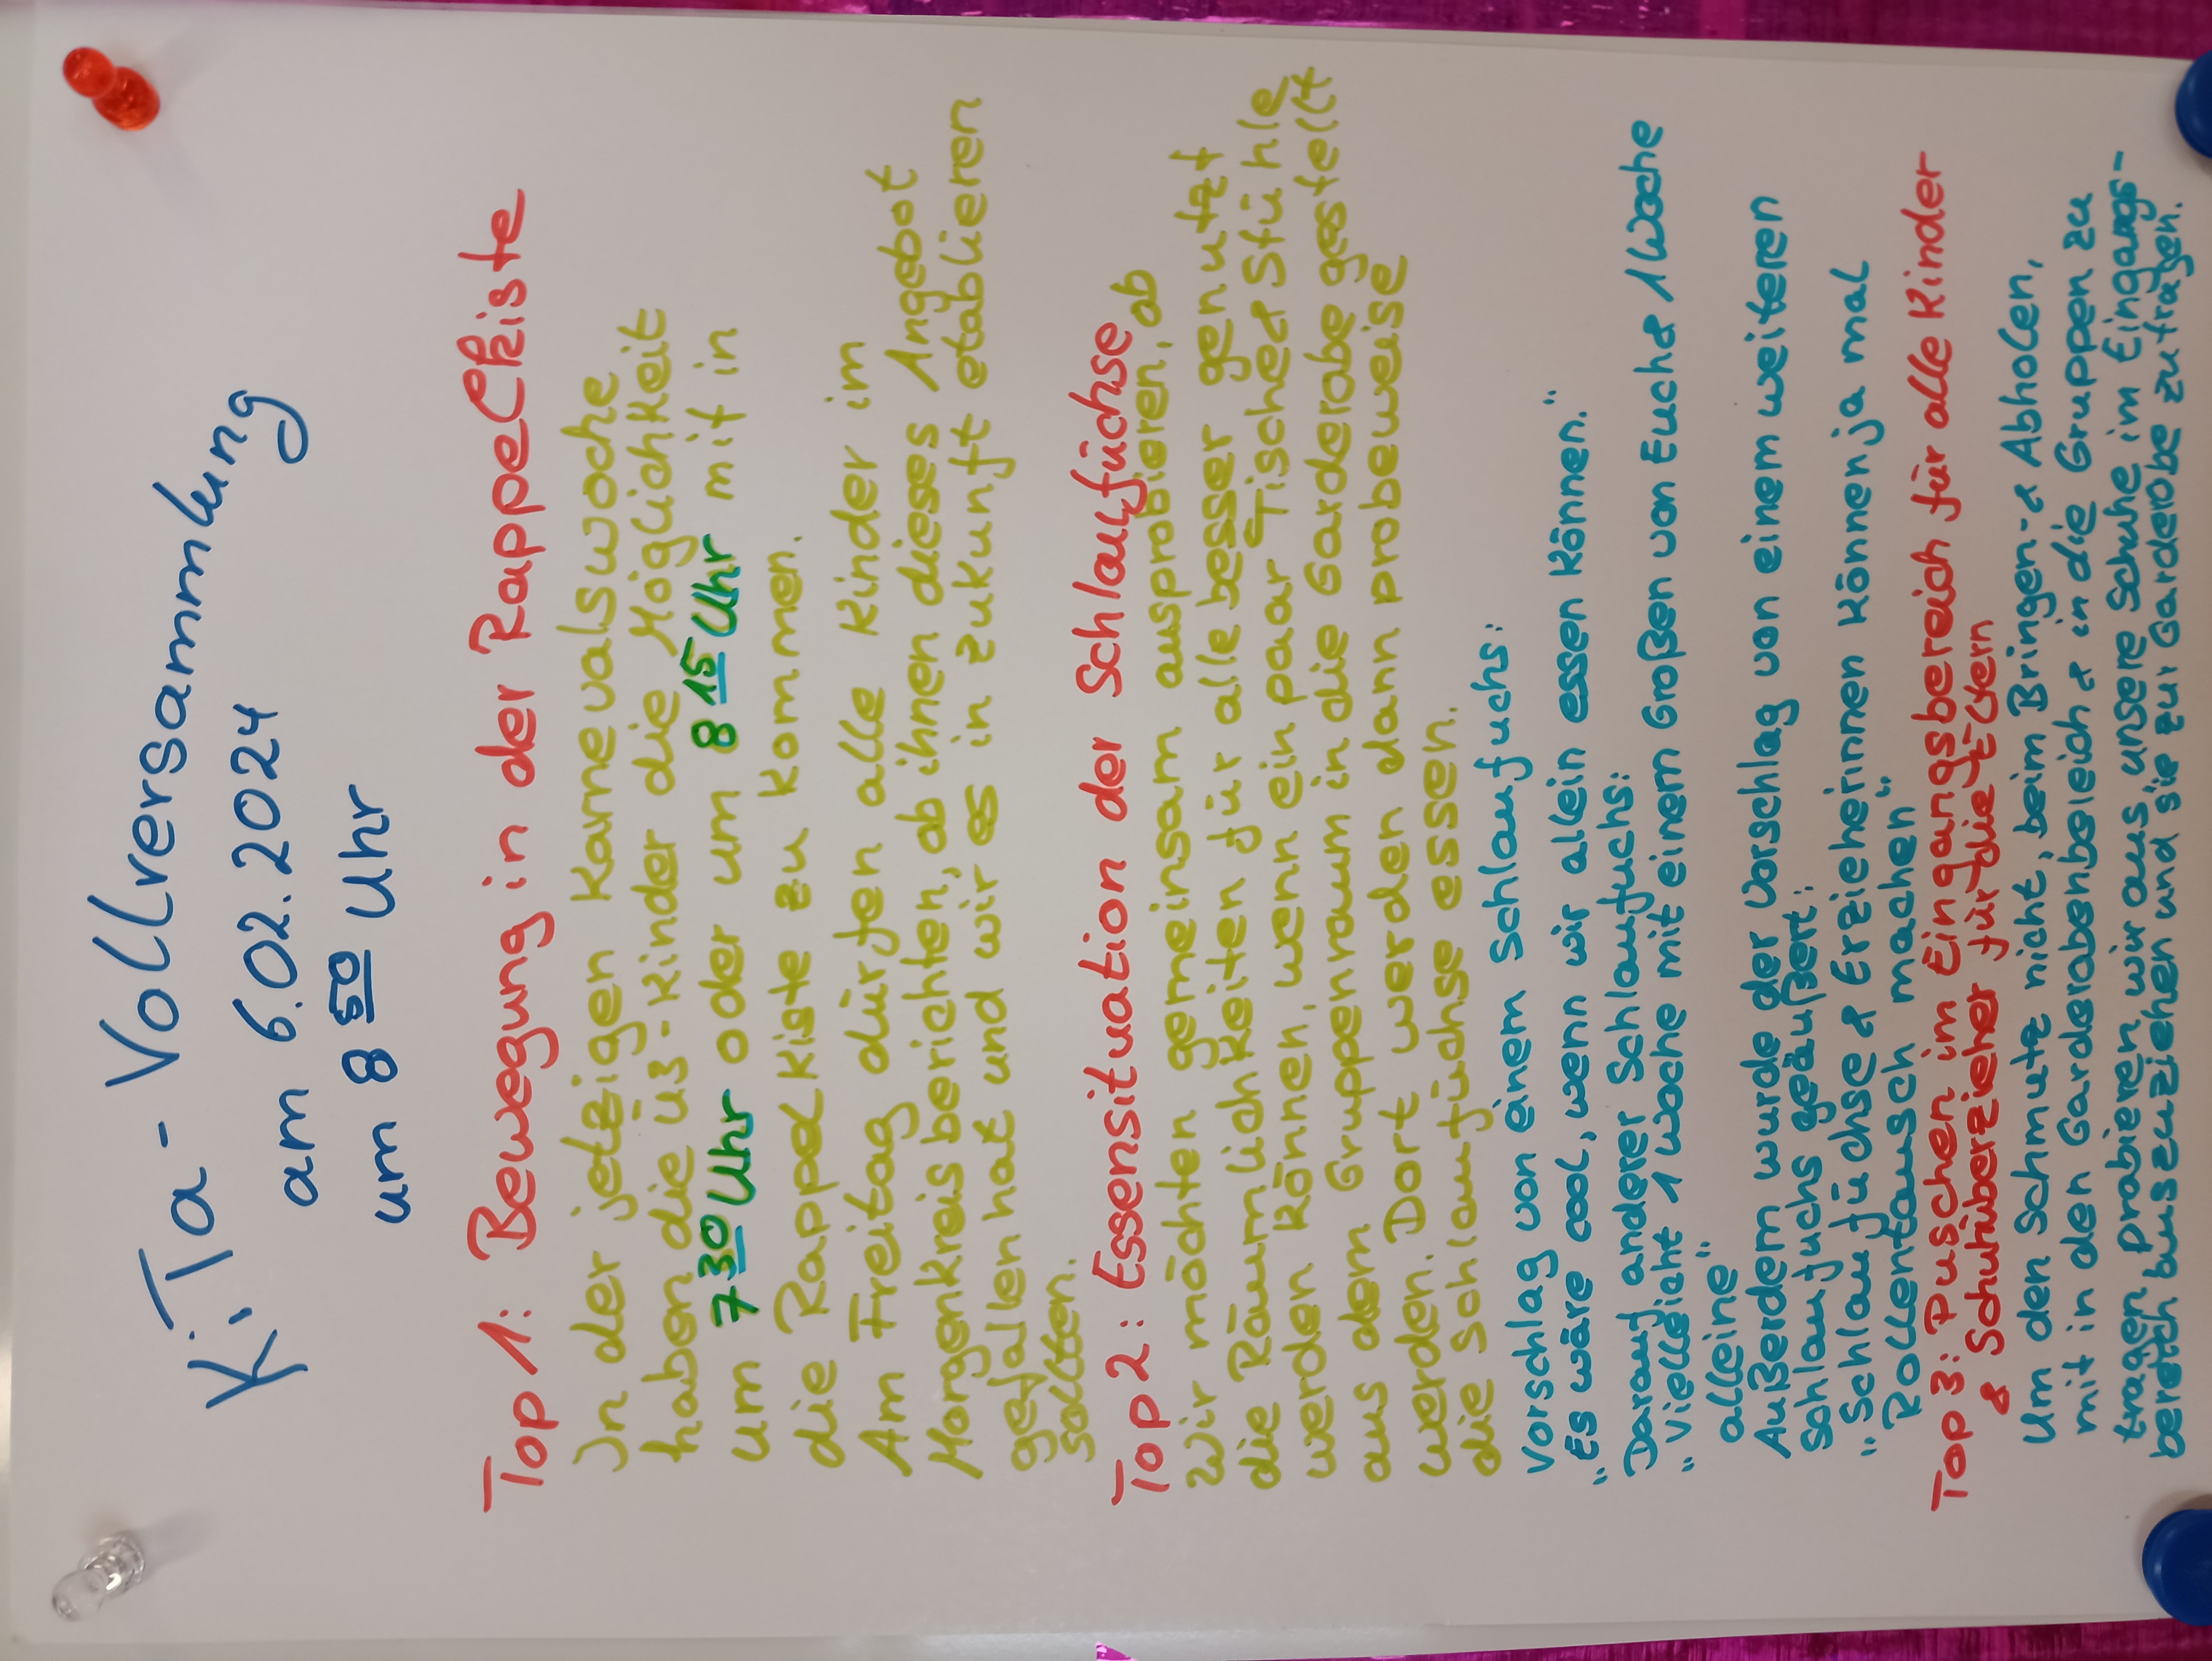 KiTa - Vollversammlung
am 6.02.2024
um 8 50 Uhr
Top 1: Bewegung in der Rappelkiste
In der jetzigen Karnevalswoche
haben die Ü3-Kinder die Möglichkeit
um 7 30 Uhr oder um 8 15 Uhr mit in
die Rappelkiste zu kommen.
Am Freitag dürfen alle Kinder im
Morgenkreis berichten, ob ihnen dieses Angebot
gefallen hat und wir es in Zukunft etablieren
sollten.
Top 2: Essensituation der Schlaufüchse
Wir möchten gemeinsam ausprobieren, ob
die Räumlichkeiten für alle besser genutzt
werden können, wenn ein paar Tische & Stühle
aus dem Gruppenraum in die Garderobe gestellt
werden. Dort werden dann probeweise
die Schlaufüchse essen.
Vorschlag von einem Schlaufuchs:
"Es wäre cool, wenn wir allein essen können."
Darauf anderer Schlaufuchs:
"Vielleicht 1 Woche mit einem Großen von Euch & 1 Woche
alleine"
Außerdem wurde der Vorschlag von einem weiteren
Schlaufuchs geäußert:
"Schlaufüchse & Erzieherinnen können ja mal
Rollentausch machen"
Top 3: Puschen im Eingangsbereich für alle Kinder
& Schuhüberzieher für die Eltern
Um den Schmutz nicht, beim Bringen- & Abholen,
mit in den Garderobenbeleich & in die Gruppen zu
tragen, probieren wir aus unsere Schuhe im Eingangs-
bereich auszuziehen und sie zur Garderobe zu tragen.